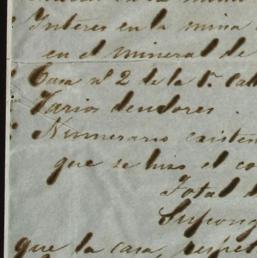 Interes en la mina
en el mineral de
Casa nº 2 de la 1ª Call
Varios deudores.
Numerario existen
que se hizo el co
Total d
Supong
que la casa, respec